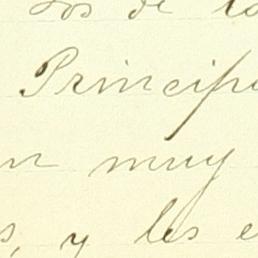 os de lo
Princip
n muy
s, y les e